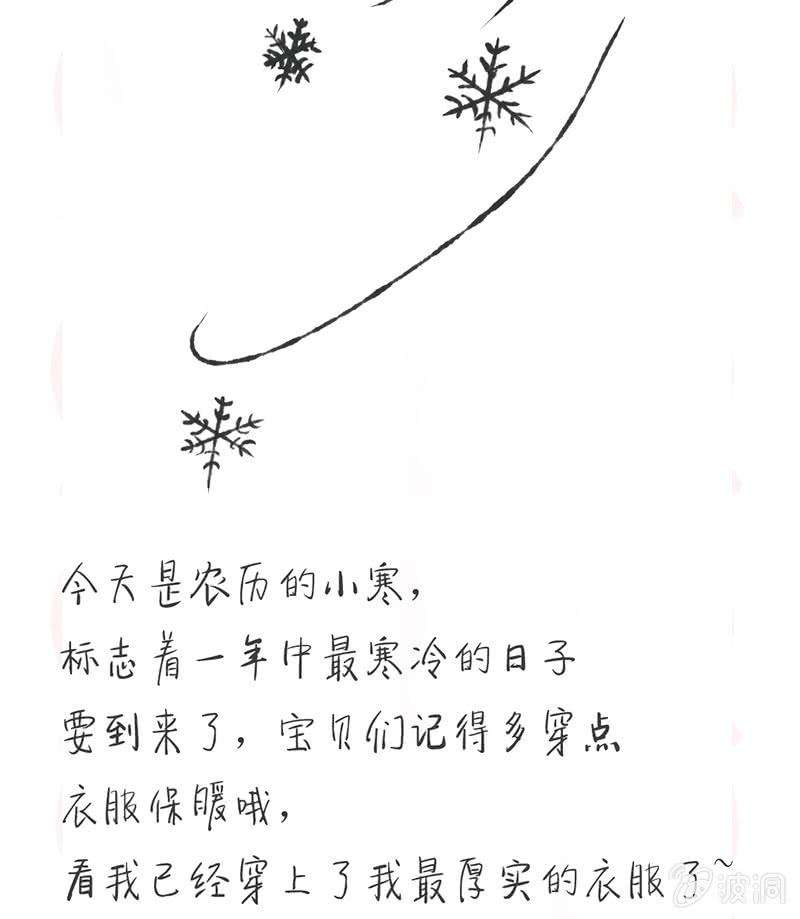 今天是农历的小寒，
标志着一年中最寒冷的日子
要到来了，宝贝们记得多穿点
衣服保暖哦，
看我已经穿上了我最厚实的衣服了~
波洞